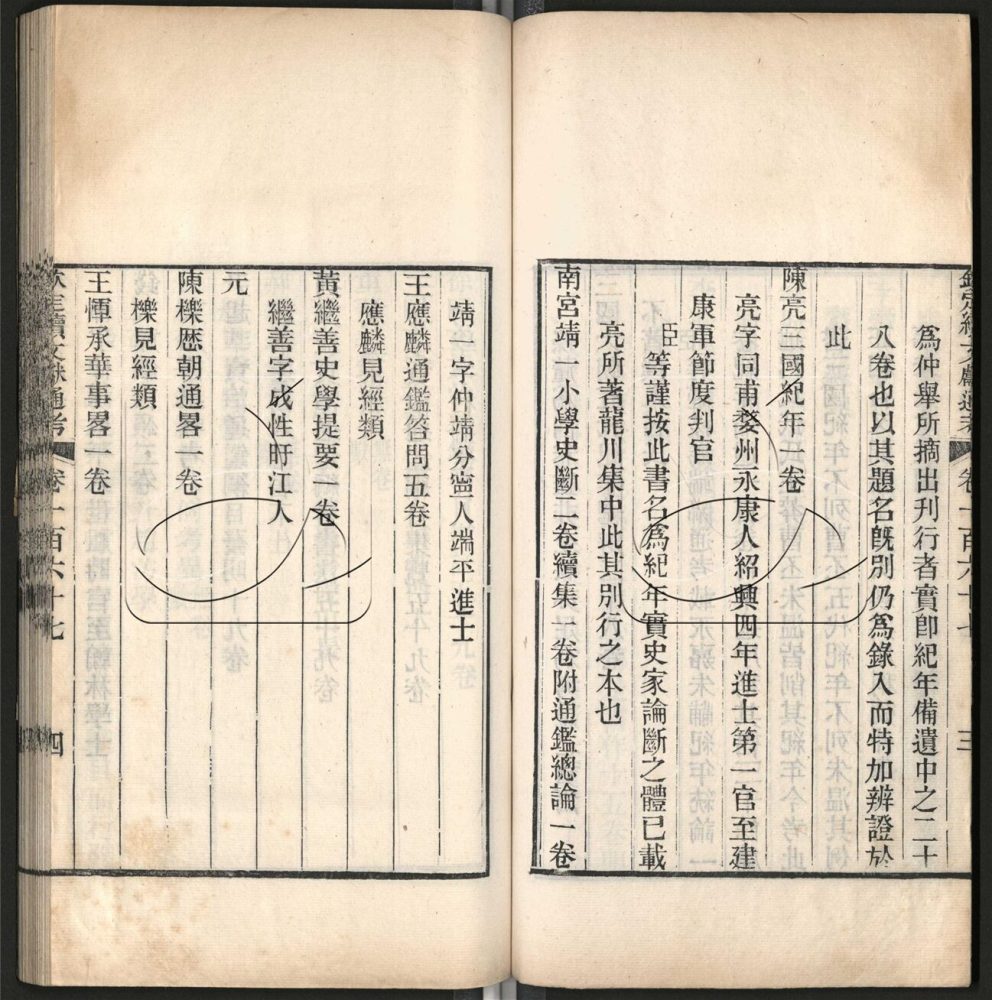 欽定續文獻通考 卷一百六十七 三
爲仲舉所摘出刋行者實卽紀年備遺中之二十
八卷也以其題名旣別仍爲錄入而特加辨證於
此
陳亮三國紀年一卷
亮字同甫婺州永康人紹興四年進士第一官至建
康軍節度判官
臣等謹按此書名爲紀年實史家論斷之體已載
亮所著龍川集中此其別行之本也
南宮靖一小學史斷二卷續集一卷附通鑑總論一卷
靖一字仲靖分寧人端平進士
王應麟通鑑答問五卷
應麟見經類
黃繼善史學提要一卷
繼善字成性盱江人
元
陳櫟歷朝通畧一卷
櫟見經類
王惲承華事畧一卷
欽定續文獻通考 卷一百六十七 四